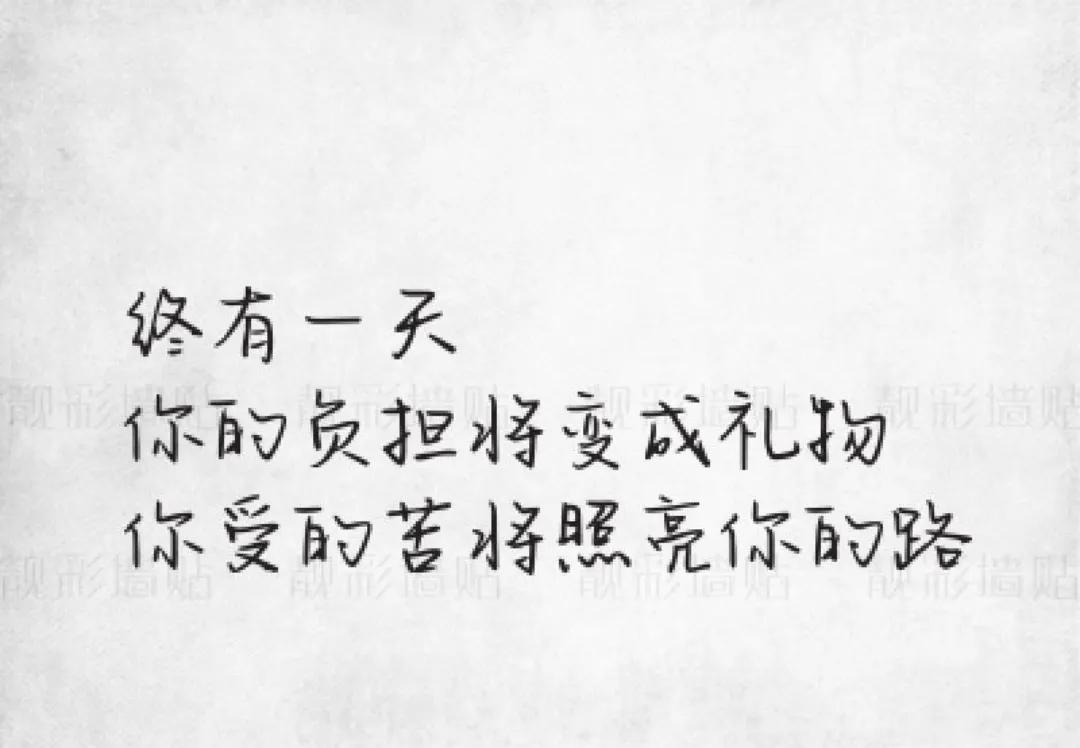 终有一天
你的负担将变成礼物
靓彩墙贴 靓彩墙贴 靓彩墙贴 靓彩墙贴
你受的苦将照亮你的路
靓彩墙贴 靓彩墙贴 靓彩墙贴 靓彩墙贴